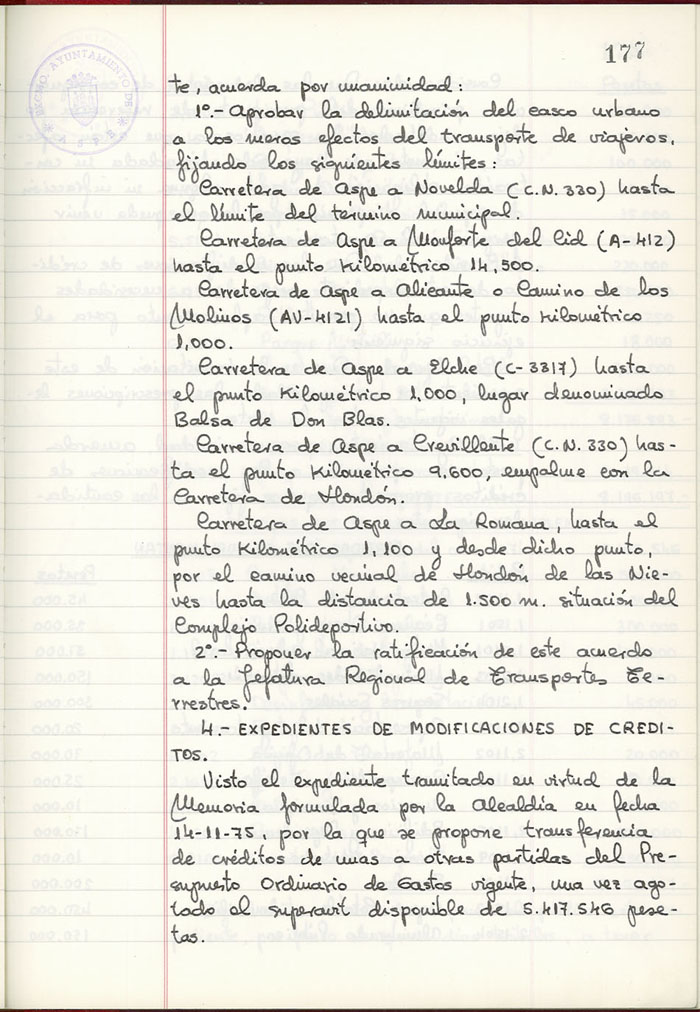 177
AYUNTAMIENTO DE
te, acuerda por unanimidad:
1º.- Aprobar la delimitación del casco urbano
a los meros efectos del transporte de viajeros,
fijando los siguientes límites:
Carretera de Aspe a Novelda (C.N. 330) hasta
el límite del término municipal.
Carretera de Aspe a Monforte del Cid (A-412)
hasta el punto Kilométrico 14,500.
Carretera de Aspe a Alicante o Camino de los
Molinos (AV-4121) hasta el punto kilométrico
1,000.
Carretera de Aspe a Elche (C-3317) hasta
el punto Kilométrico 1,000, lugar denominado
Balsa de Don Blas.
Carretera de Aspe a Crevillente (C.N. 330) has-
ta el punto Kilométrico 9,600, empalme con la
Carretera de Hondón.
Carretera de Aspe a La Romana, hasta el
punto Kilométrico 1,100 y desde dicho punto,
por el camino vecinal de Hondón de las Nie-
ves hasta la distancia de 1.500 m. situación del
Complejo Polideportivo.
2º.- Proponer la ratificación de este acuerdo
a la Jefatura Regional de Transportes Te-
rrestres.
4.- EXPEDIENTES DE MODIFICACIONES DE CREDI-
TOS.
Visto el expediente tramitado en virtud de la
Memoria formulada por la Alcaldía en fecha
14-11-75, por la que se propone transferencia
de créditos de unas a otras partidas del Pre-
supuesto Ordinario de Gastos vigente, una vez ago-
tado el superavit disponible de 5.417.546 pese-
tas.